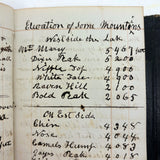 Elevation of some Mountins
West side the Lake
Mt Marcy 5 467 feet
Dix Peak 5 200
Nipple Top 4 900
White Face 4 900
Raven Hill 2 100
Bald Peak 2 065
On East side
4 0
Nose 4 0
Camels Hump 4 083
Peak 4 018